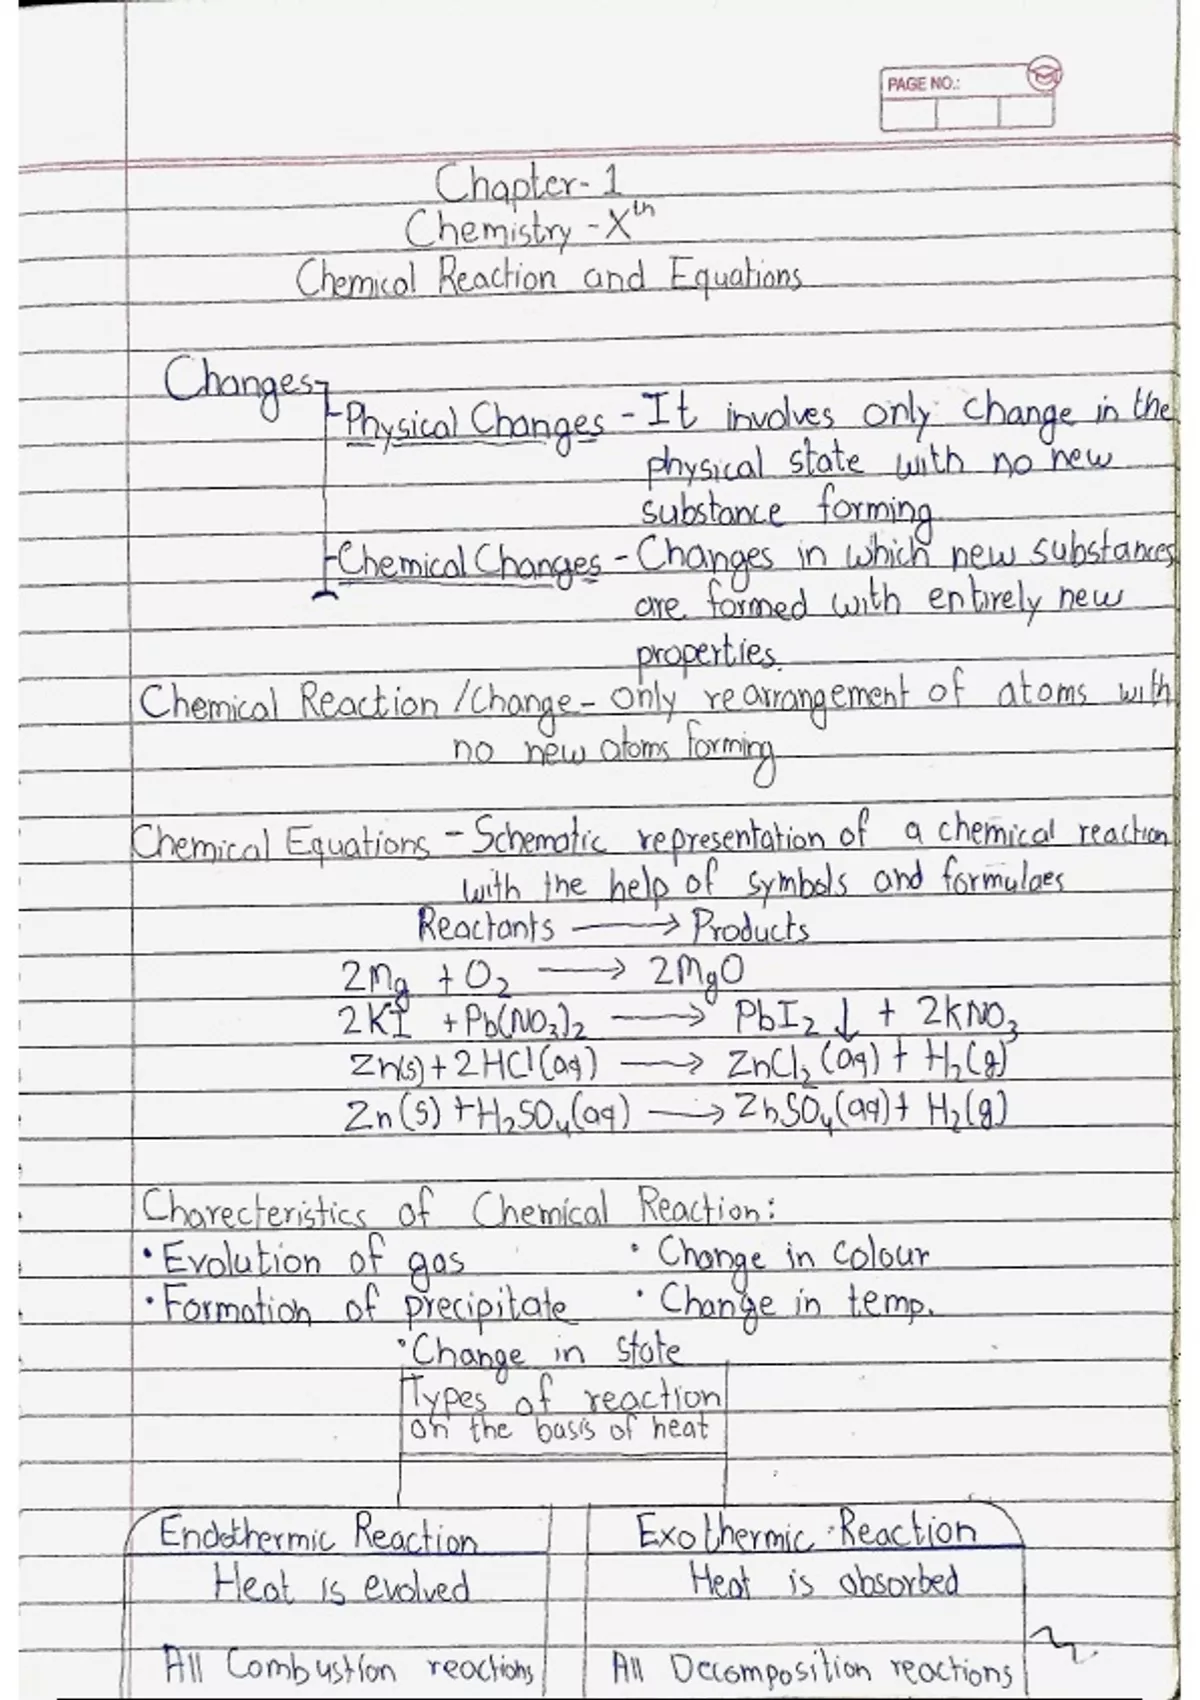 PAGE NO.:
Chapter-1
Chemistry - Xth
Chemical Reaction and Equations
Changes
Physical Changes - It involves only change in the
physical state with no new
substance forming
Chemical Changes - Changes in which new substances
are formed with entirely new
properties.
Chemical Reaction /Change - Only rearrangement of atoms with
no new atoms forming
Chemical Equations - Schematic representation of a chemical reaction
with the help of symbols and formulaes
Reactants ⟶ Products
2Mg + O₂ ⟶ 2MgO
2KI + Pb(NO₃)₂ ⟶ PbI₂ ↓ + 2KNO₃
Zn(s) + 2HCl(aq) ⟶ ZnCl₂(aq) + H₂(g)
Zn(s) + H₂SO₄(aq) ⟶ ZnSO₄(aq) + H₂(g)
Charecteristics of Chemical Reaction:
• Evolution of gas • Change in Colour
• Formation of precipitate • Change in temp.
• Change in state
Types of reaction
on the basis of heat
Endothermic Reaction Exothermic Reaction
Heat is evolved Heat is absorbed
All Combustion reactions All Decomposition reactions